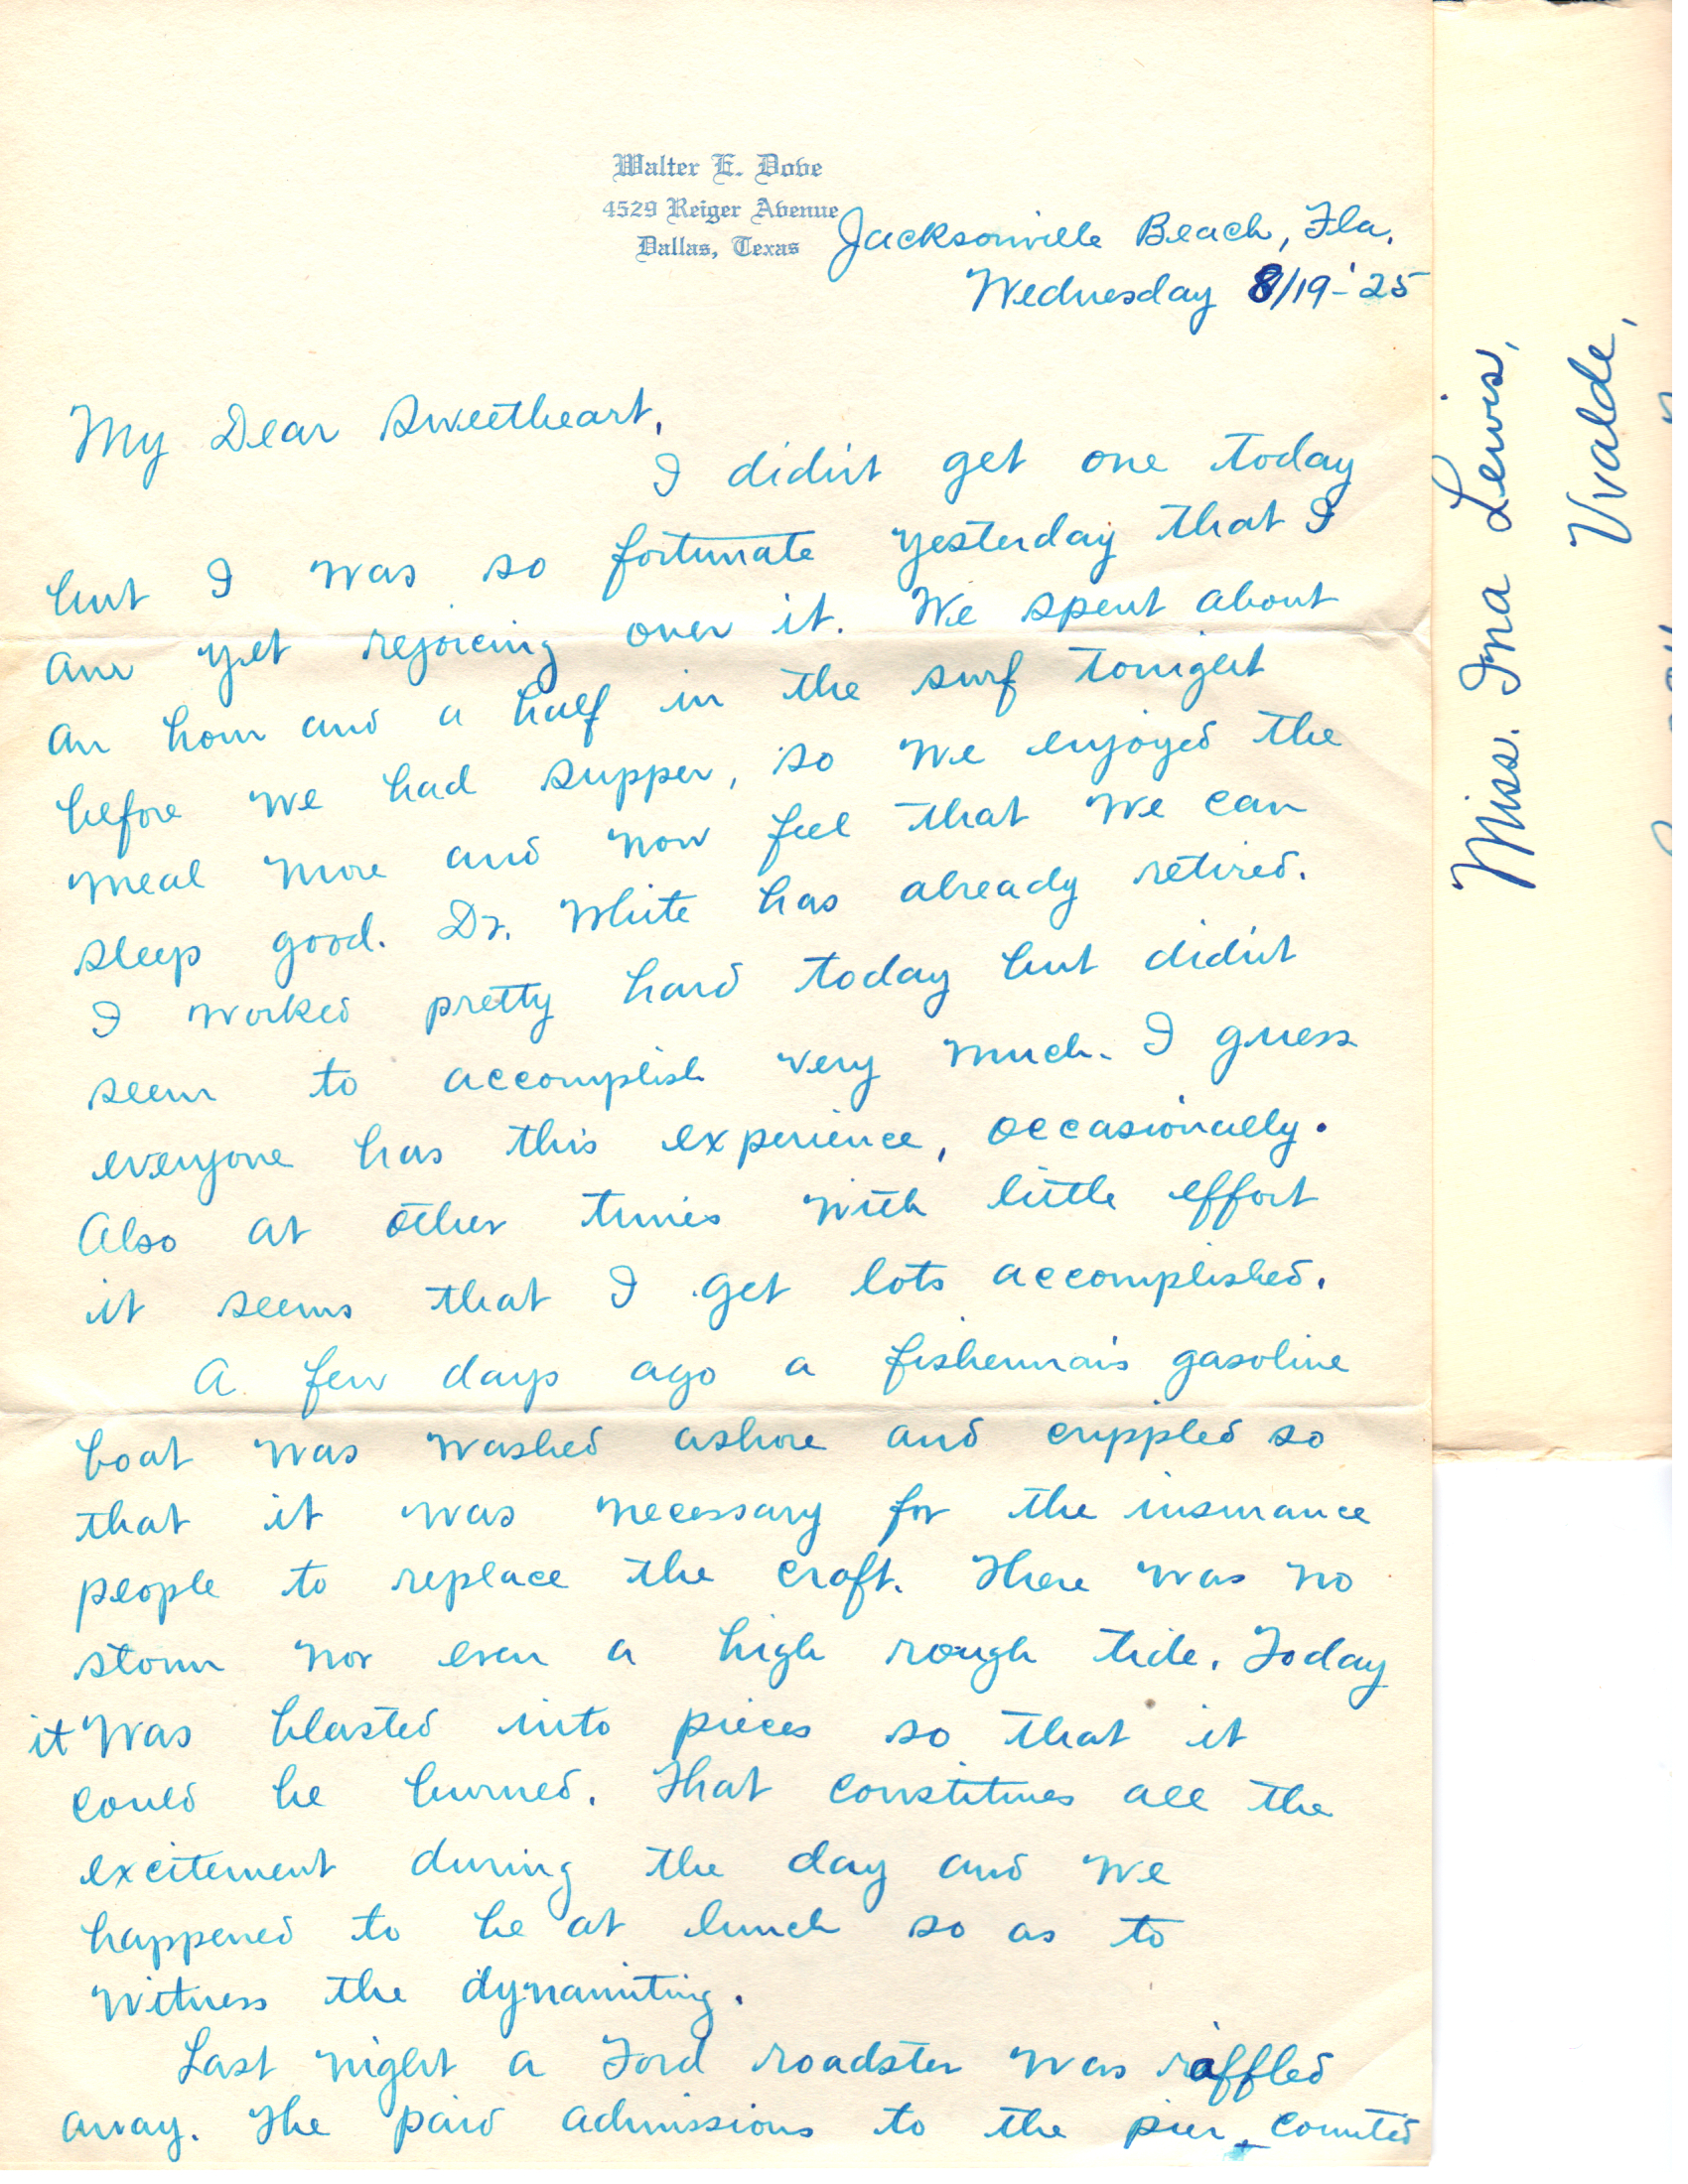 Walter E. Dove
4529 Reiger Avenue
Dallas, Texas
Jacksonville Beach, Fla.
Wednesday 8/19-'25
My Dear Sweetheart,
I didn't get one today
but I was so fortunate yesterday that I
am yet rejoicing over it. We spent about
an hour and a half in the surf tonight
before we had supper, so we enjoyed the
meal more and now feel that we can
sleep good. Dr. White has already retired.
I worked pretty hard today but didn't
seem to accomplish very much. I guess
everyone has this experience, occasionally.
Also at other times with little effort
it seems that I get lots accomplished.
A few days ago a fisherman's gasoline
boat was washed ashore and crippled so
that it was necessary for the insurance
people to replace the craft. There was no
storm nor even a high rough tide. Today
it was blasted into pieces so that it
could be burned. That constitutes all the
excitement during the day and we
happened to be at lunch so as to
witness the dynamiting.
Last night a Ford roadster was raffled
away. The paid admissions to the pier counted
Miss. Ina Lewis,
Uvalde,